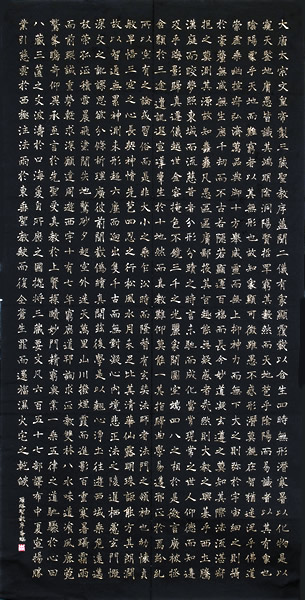 大唐太宗文皇帝製三藏聖教序蓋聞二儀有象顯覆載以含生四時無形潛寒暑以化物是以
窺天鑒地庸愚皆識其端明陰洞陽賢哲罕窮其數然而天地苞乎陰陽而易識者以其有象也
陰陽處乎天地而難窮者以其無形也故知象顯可徵雖愚不惑形潛莫覩在智猶迷況乎佛道
崇虛乘幽控寂弘濟萬品典御十方舉威靈而無上抑神力而無下大之則彌於宇宙細之則攝
於毫釐無滅無生歷千劫而不古若隱若顯運百福而長今妙道凝玄遵之莫知其際法流湛寂
挹之莫測其源故知蠢蠢凡愚區區庸鄙投其旨趣能無疑惑者哉然則大教之興基乎西土騰
漢庭而皎夢照東域而流慈昔者分形分迹之時言未馳而成化當常現常之世人仰德而知遵
及乎晦影歸真遷儀越世金容掩色不鏡三千之光麗象開圖空端四八之相於是微言廣被拯
含類於三塗遺訓遐宣導群生於十地然而真教難仰莫能一其指歸曲學易遵邪正於焉紛糺
所以空有之論或習俗而是非大小之乘乍沿時而隆替有玄奘法師者法門之領袖也幼懷貞
敏早悟三空之心長契神情先苞四忍之行松風水月未足比其清華仙露明珠詎能方其朗潤
故以智通無累神測未形超六塵而迥出隻千古而無對凝心內境悲正法之陵遲栖慮玄門慨
深文之訛謬思欲分條析理廣彼前聞截偽續真開茲後學是以翹心淨土往遊西域乘危遠邁
杖策孤征積雪晨飛塗間失地驚砂夕起空外迷天萬里山川撥煙霞而進影百重寒暑躡霜雨
而前蹤誠重勞輕求深願達周遊西宇十有七年窮歷道邦詢求正教雙林八水味道飡風鹿菀
鷲峯瞻奇仰異承至言於先聖受真教於上賢探賾妙門精窮奧業一乘五律之道馳驟於心田
八藏三篋之文波濤於口海爰自所歷之國總將三藏要文凡六百五十七部譯布中夏宣揚勝
業引慈雲於西極注法雨於東垂聖教缺而復全蒼生罪而還福濕火宅之乾燄